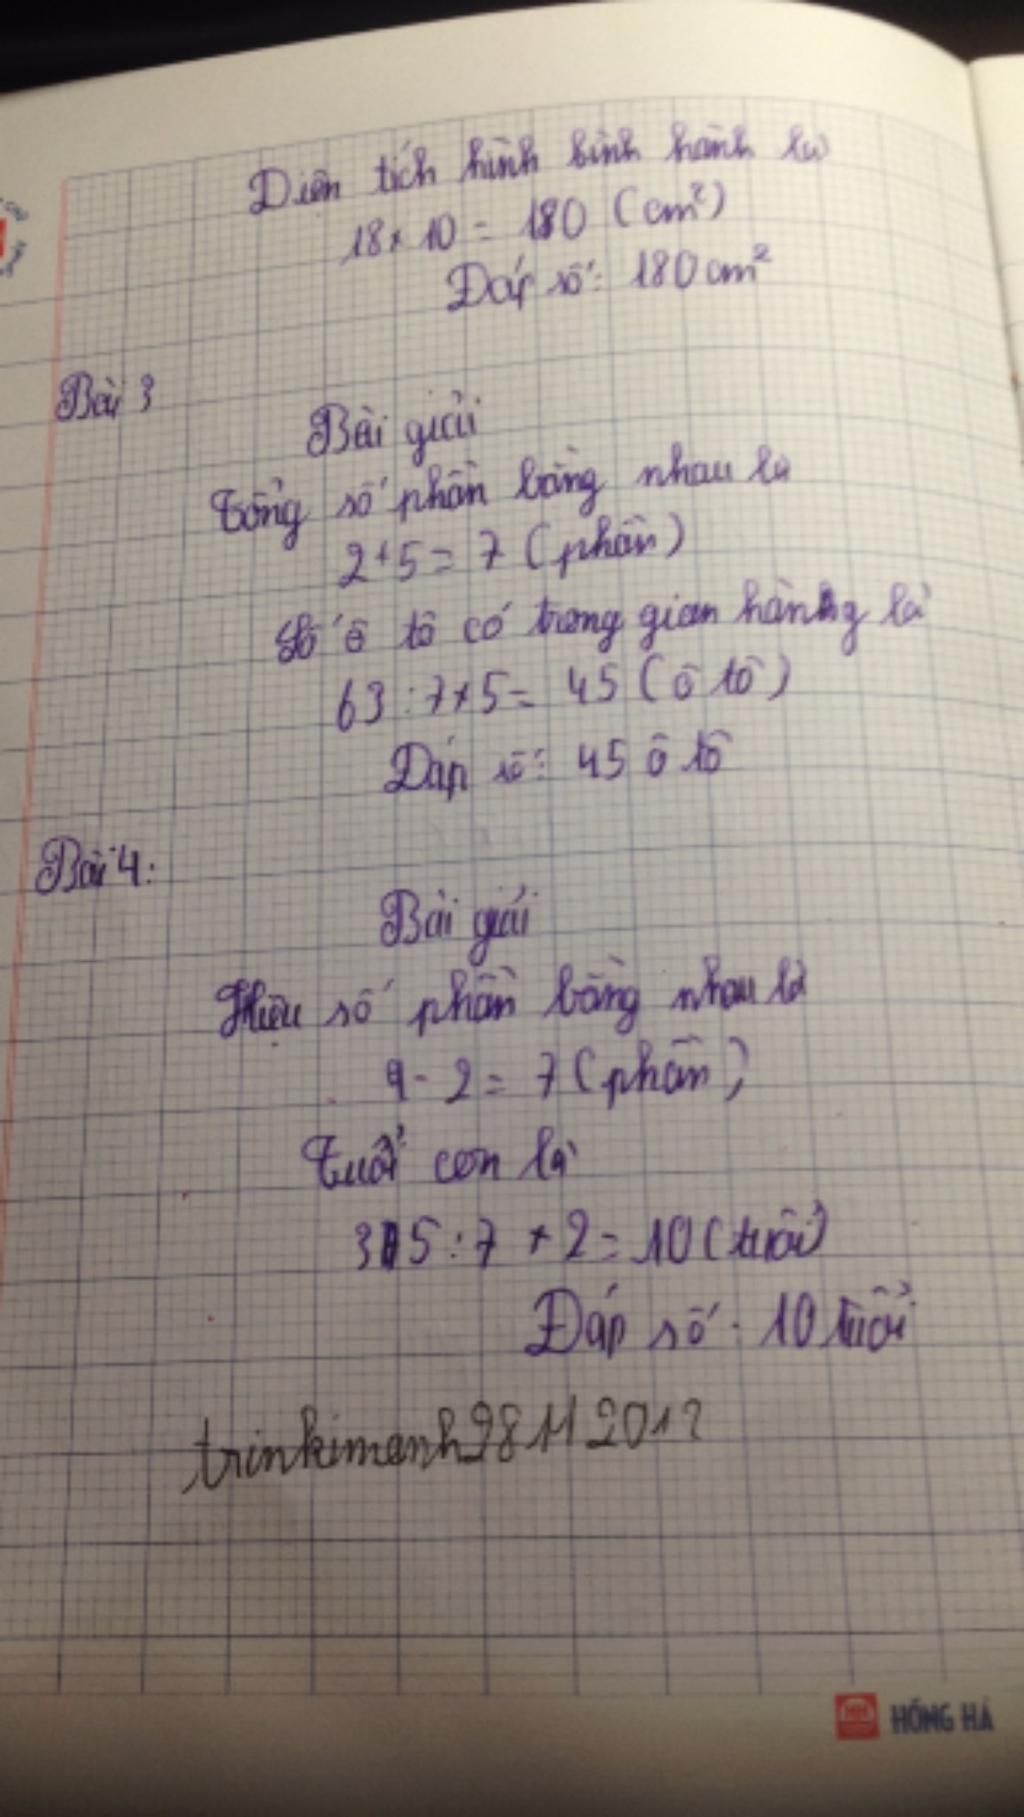 Diện tích hình bình hành là
18 x 10 = 180 (cm²)
Đáp số: 180 cm²
Bài 3
Bài giải
Tổng số phần bằng nhau là
2+5 = 7 (phần)
Số ô tô có trong gian hàng là
63 : 7 x 5 = 45 (ô tô)
Đáp số: 45 ô tô
Bài 4:
Bài giải
Hiệu số phần bằng nhau là
9 - 2 = 7 (phần)
Tuổi con là
35 : 7 x 2 = 10 (tuổi)
Đáp số: 10 tuổi
HỒNG HÀ